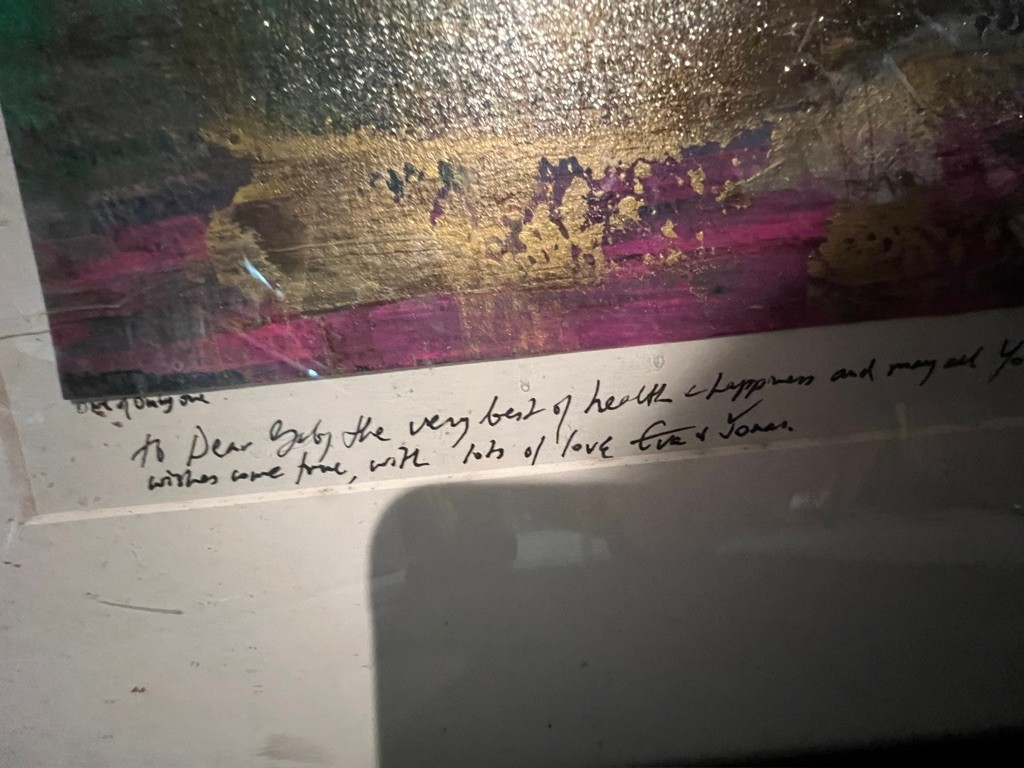 One of Only one
To Dear Gaby the very best of health & happiness and may all Yo
wishes come true, with lots of love Eva & Jonas.